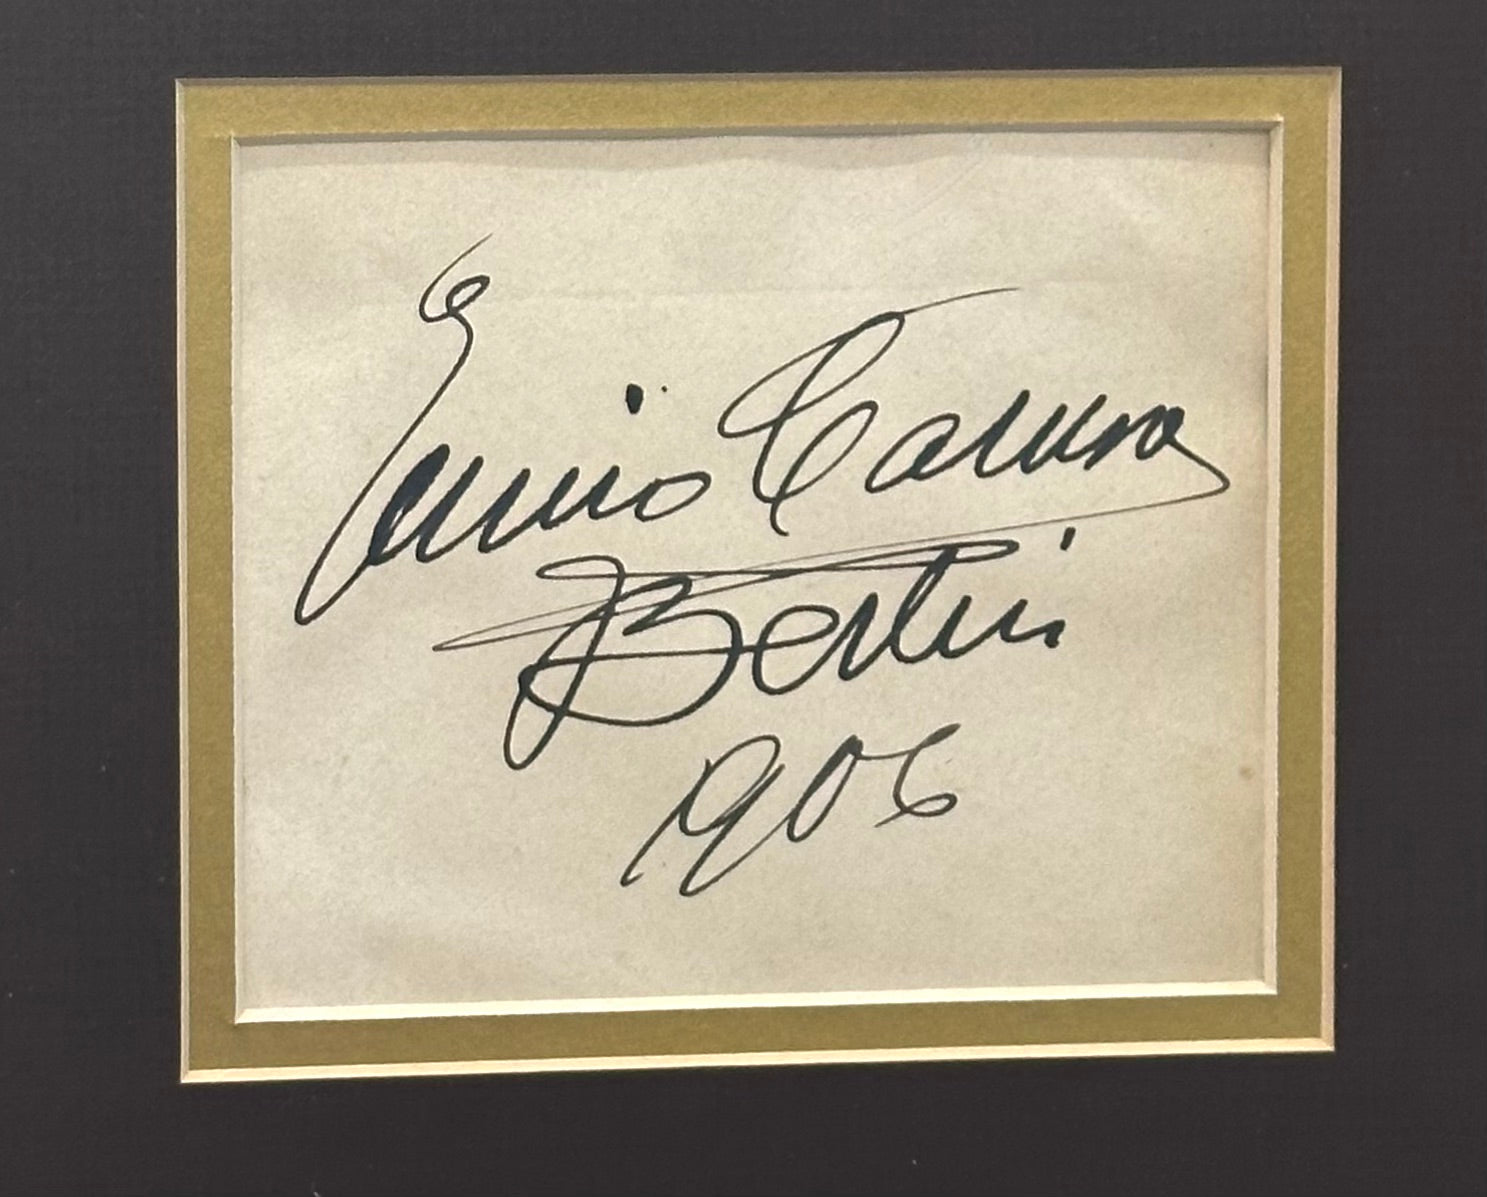 Enrico Caruso
Berlin
1906